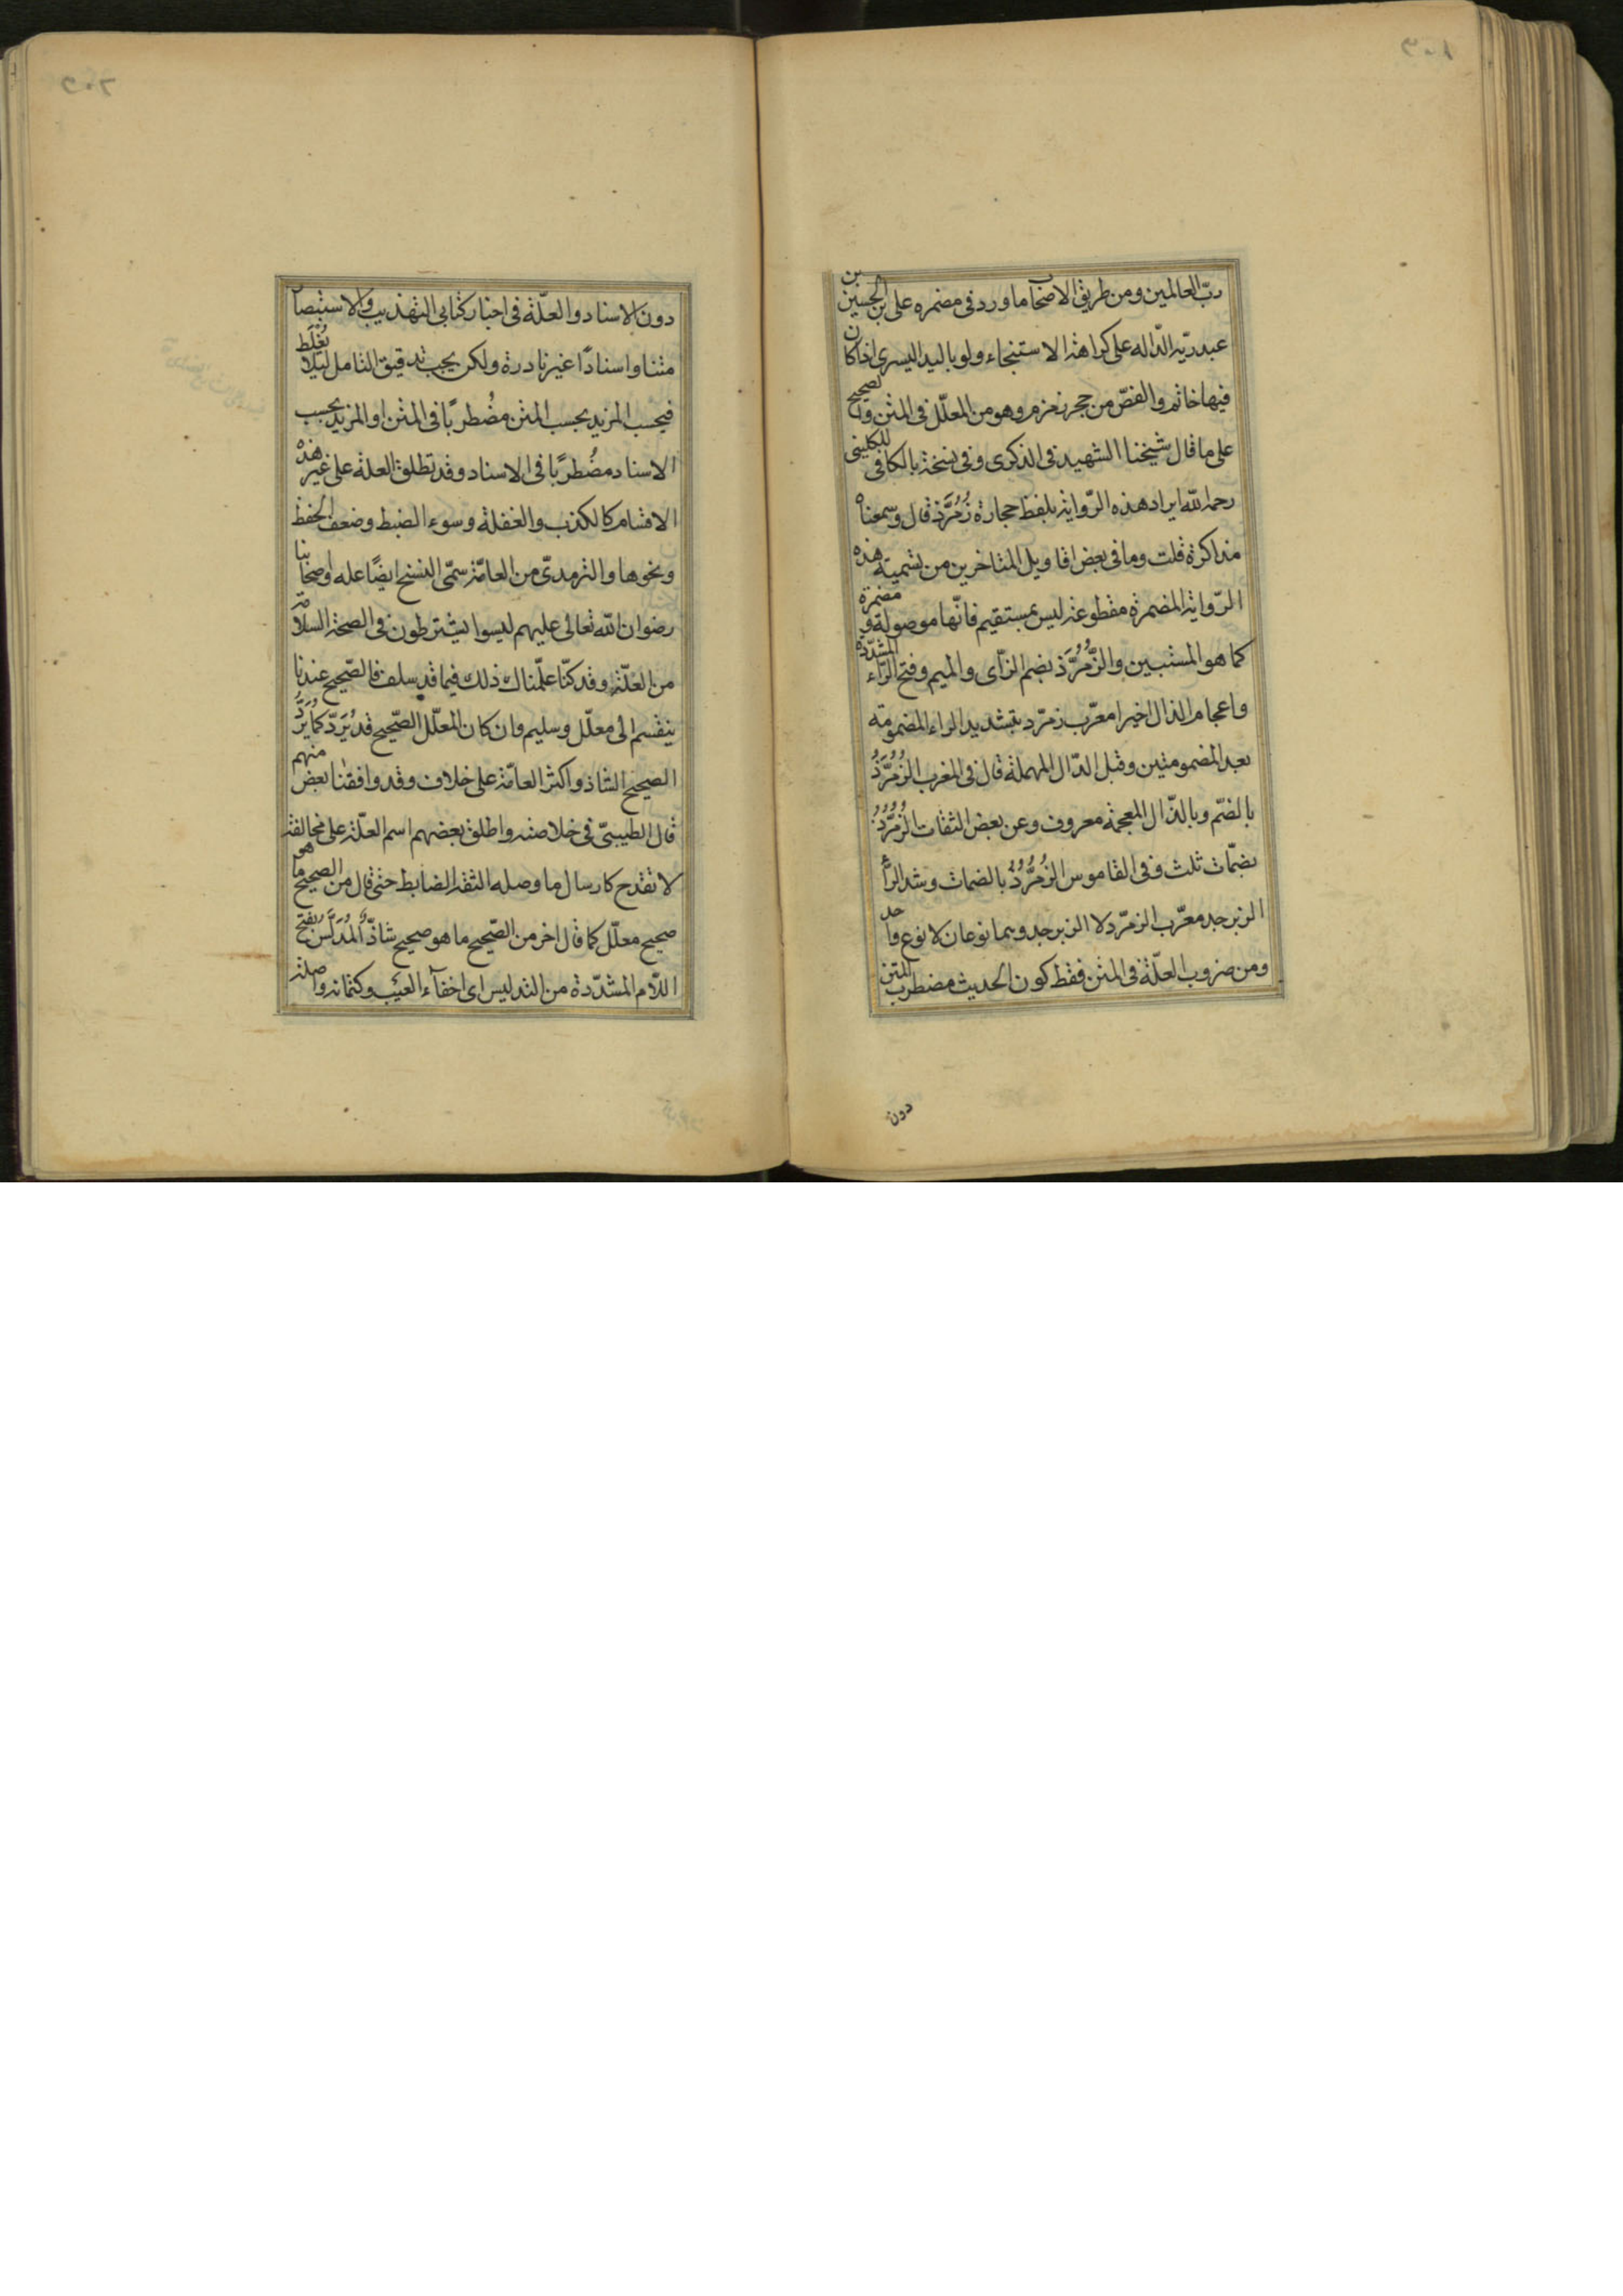 ربّ العالمين ومن طريق الاصحاب ما ورد فى مضمره على بن الحسين بن
عبد ربّه الدّاله على كراهة الاستنجاء ولو باليد اليسرى اذا كان
فيها خاتم والفصّ من حجر زمزم وهو من المعلّل فى المتن والصحيح
على ما قال شيخنا الشهيد فى الذكرى وفى نسخة بالكافى للكلينى
رحمه الله ايراد هذه الرّواية بلفظ حجارة زُمُرَّذ قال وسمعناه
مذاكرة قلت وما فى بعض اقاويل المتاخرين من تسمية هذه
الرّواية المضمرة مقطوعة ليس بمستقيم فانّها موصولة مضمرة و
كما هو المستبين والزُّمُرَّذ بضم الزّاى والميم وفتح الرّاء المشدّدة
واعجام الذال اخيرا معرّب زمرّد بتشديد الراء المضمومة
بعد المضمومتين وقبل الدّال المهملة قال فى المغرب الزُمُرَّذُ
بالضمّ وبالذّال المعجمة معروف وعن بعض الثقات الزُمُرُّذُ
بضمّات ثلث وفى القاموس الزُمُرُّدُ بالضمات وشد الرّاء
الزبرجد معرّب الزمرّد لا الزبرجد وهما نوعان لا نوع واحد
ومن ضروب العلّة فى المتن فقط كون الحديث مضطرب المتن
دون
دون الاسناد والعلّة فى اخبار كتابى التهذيب والاستبصار
متنا واسنادًا غير نادرة ولكن يجب تدقيق التامل ليلا يُغْلَط
فيحسب المزيد بحسب المتن مضُطربًا فى المتن او المزيد بحسب
الاسناد مضُطربًا فى الاسناد وقد تطلق العلة على غير هذه
الاقسام كالكذب والغفلة وسوء الضبط وضعف الحفظ
ونحوها والترمدىّ من العامّة سمّى النسخ ايضًا علة واصحابنا
رضوان الله تعالى عليهم ليسوا يشترطون فى الصحة السلامة
من العلّة وقد كنّا علّمناك ذلك فيما قد سلف فالصّحيح عندنا
ينقسم الى معلّل وسليم وان كان المعلّل الصّحيح قد يُرَدّ كما يُرَدُّ
الصحيح الشاذ واكثر العامّة على خلاف وقد وافقنا بعض منهم
قال الطيبىّ فى خلاصته واطلق بعضهم اسم العلّة على مخالفة
لا تقدح كارسال ما وصله الثقة الضابط حتى قال من الصحيح ما هو
صحيح معلّل كما قال اخر من الصّحيح ما هو صحيح شاذّ المُدَلَّس بفتح
اللّام المشدّدة من التدليس اى اخفاء العيب وكتمانه واصلة